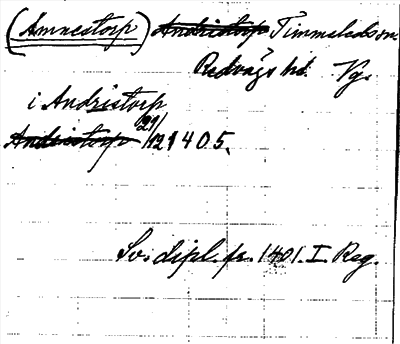 (Amnestorp) Andristorp Timmeleds sn.
Redvägs hd. Vg.
i Andristorp
Andristorp 29/12 1405.
Sv. dipl. fr. 1401. I. Reg.